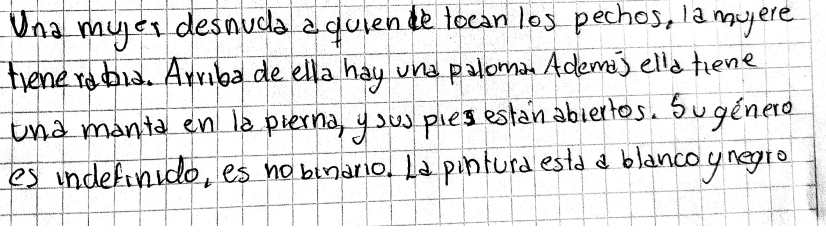 Una mujer desnuda a quien le tocan los pechos, la mujere
tiene rabia. Arriba de ella hay una paloma. Además ella tiene
una manta en la pierna, y sus pies están abiertos. Su género
es indefinido, es no binario. La pintura está a blanco y negro